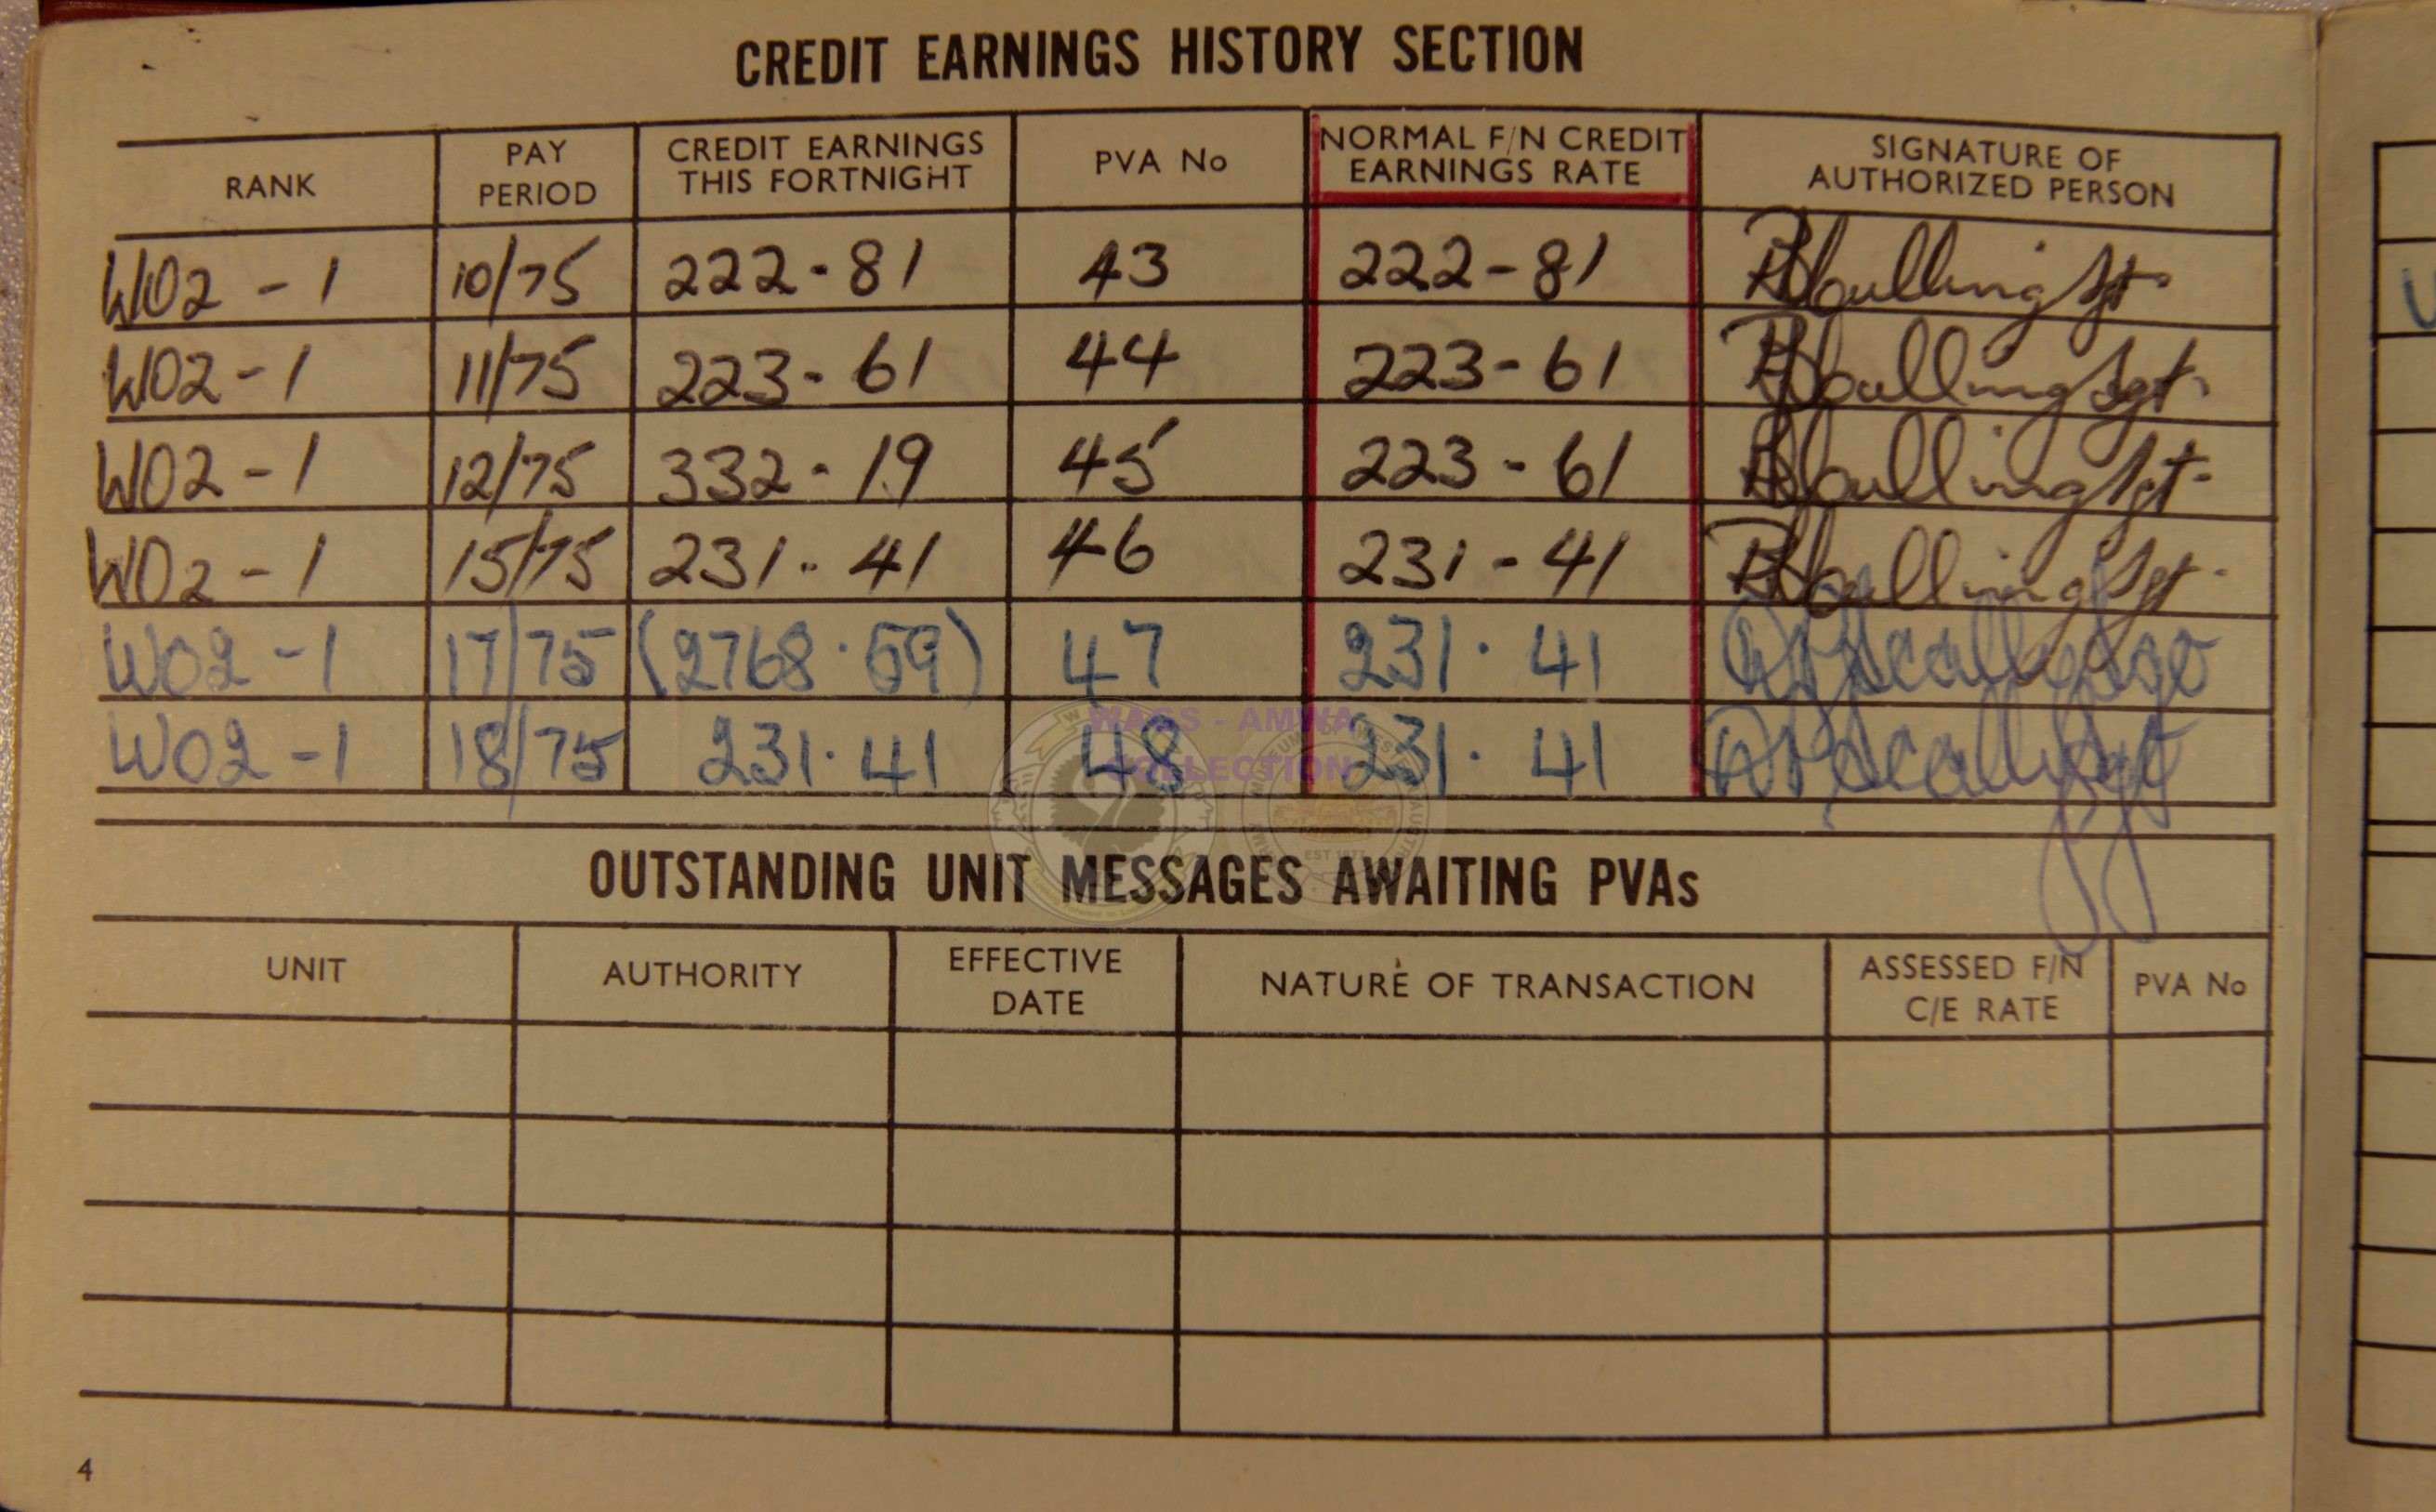 CREDIT EARNINGS HISTORY SECTION
RANK PAY PERIOD CREDIT EARNINGS THIS FORTNIGHT PVA No NORMAL F/N CREDIT EARNINGS RATE SIGNATURE OF AUTHORIZED PERSON
WO2 - 1 10/75 222 - 81 43 222 - 81 Sgt
WO2 - 1 11/75 223 - 61 44 223 - 61 Sgt
WO2 - 1 12/75 332 - 19 45 223 - 61 Sgt
WO2 - 1 15/75 231 - 41 46 231 - 41 Sgt
WO2 - 1 17/75 (2768 · 59) 47 231 · 41
WO2 - 1 18/75 231 · 41 48 231 · 41
WAGS - AMWA
COLLECTION
OUTSTANDING UNIT MESSAGES AWAITING PVAs
UNIT AUTHORITY EFFECTIVE DATE NATURE OF TRANSACTION ASSESSED F/N C/E RATE PVA No
4